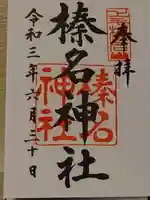 奉拝
榛名神社
榛名神社
令和三年六月三十日